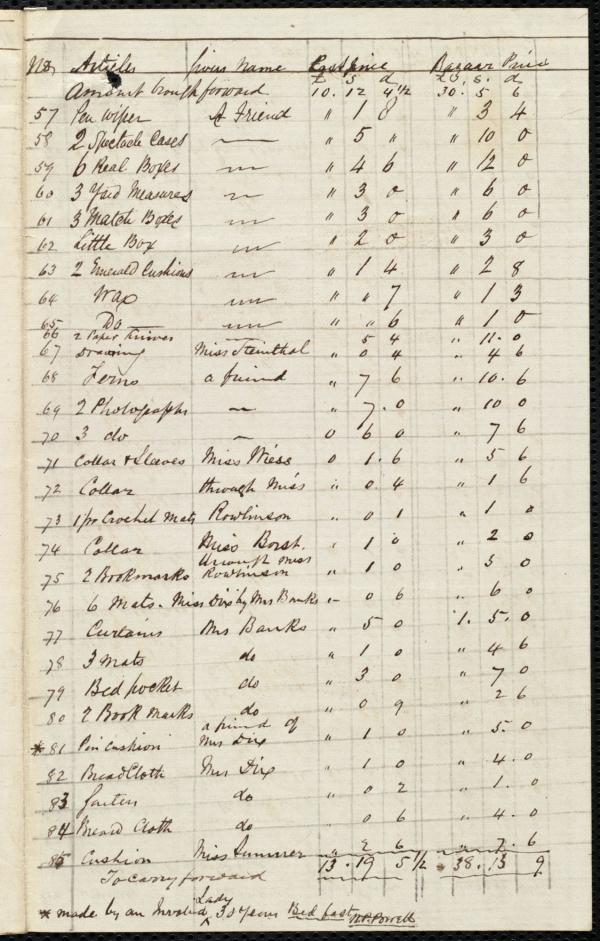 No. Articles Givers Name Cost price Bazaar Price
£ s d £ s. d
Amount brought forward 10. 12 4½ 30. 5 6
57 Pen wiper A Friend " 1 8 " 3 4
58 2 Spectacle Cases — " 5 " " 10 0
59 6 Real Boxes — " 4 6 " 12 0
60 3 Yard Measures — " 3 0 " 6 0
61 3 Match Boxes — " 3 0 " 6 0
62 Little Box — " 2 0 " 3 0
63 2 Emerald Cushions — " 1 4 " 2 8
64 Wax — " " 7 " 1 3
65 Do — " " 6 " 1 0
66 2 Paper Knives 5 4 " 11. 0
67 Drawing Miss Steinthal " 0 4 " 4 6
68 Ferns a friend " 7 6 " 10. 6
69 2 Photographs — " 7. 0 " 10 0
70 3 do — 0 6 0 " 7 6
71 Collar & Sleeves Miss Wiess 0 1. 6 " 5 6
72 Collar through Miss " 0 4 " 1 6
73 1 pr Crochet Mats Rowlinson " 0 1 " 1 0
74 Collar Miss Borst. " 1 0 " 2 0
through Miss
75 2 Bookmarks Rowlinson " 1 0 " 3 0
76 6 Mats. Miss Dix by Mrs Banks " 0 6 " 6 0
77 Curtains Mrs Banks " 5 0 1. 5. 0
78 3 mats do " 1 0 " 4 6
79 Bed pocket do " 3 0 " 7 0
80 2 Book marks do " 0 9 " 2 6
a friend of
* 81 Pin cushion Mrs Dix " 1 0 " 5. 0
82 Bread Cloth Mrs Dix " 1 0 " 4. 0
83 Garters do " 0 2 " 1. 0
84 Bread Cloth do " 0 6 " 4. 0
85 Cushion Miss Summer " 2 6 " 7. 6
To carry forward 13. 19 5½ 38. 13 9
* made by an Invalid Lady, 30 years Bed fast W.P. Powell